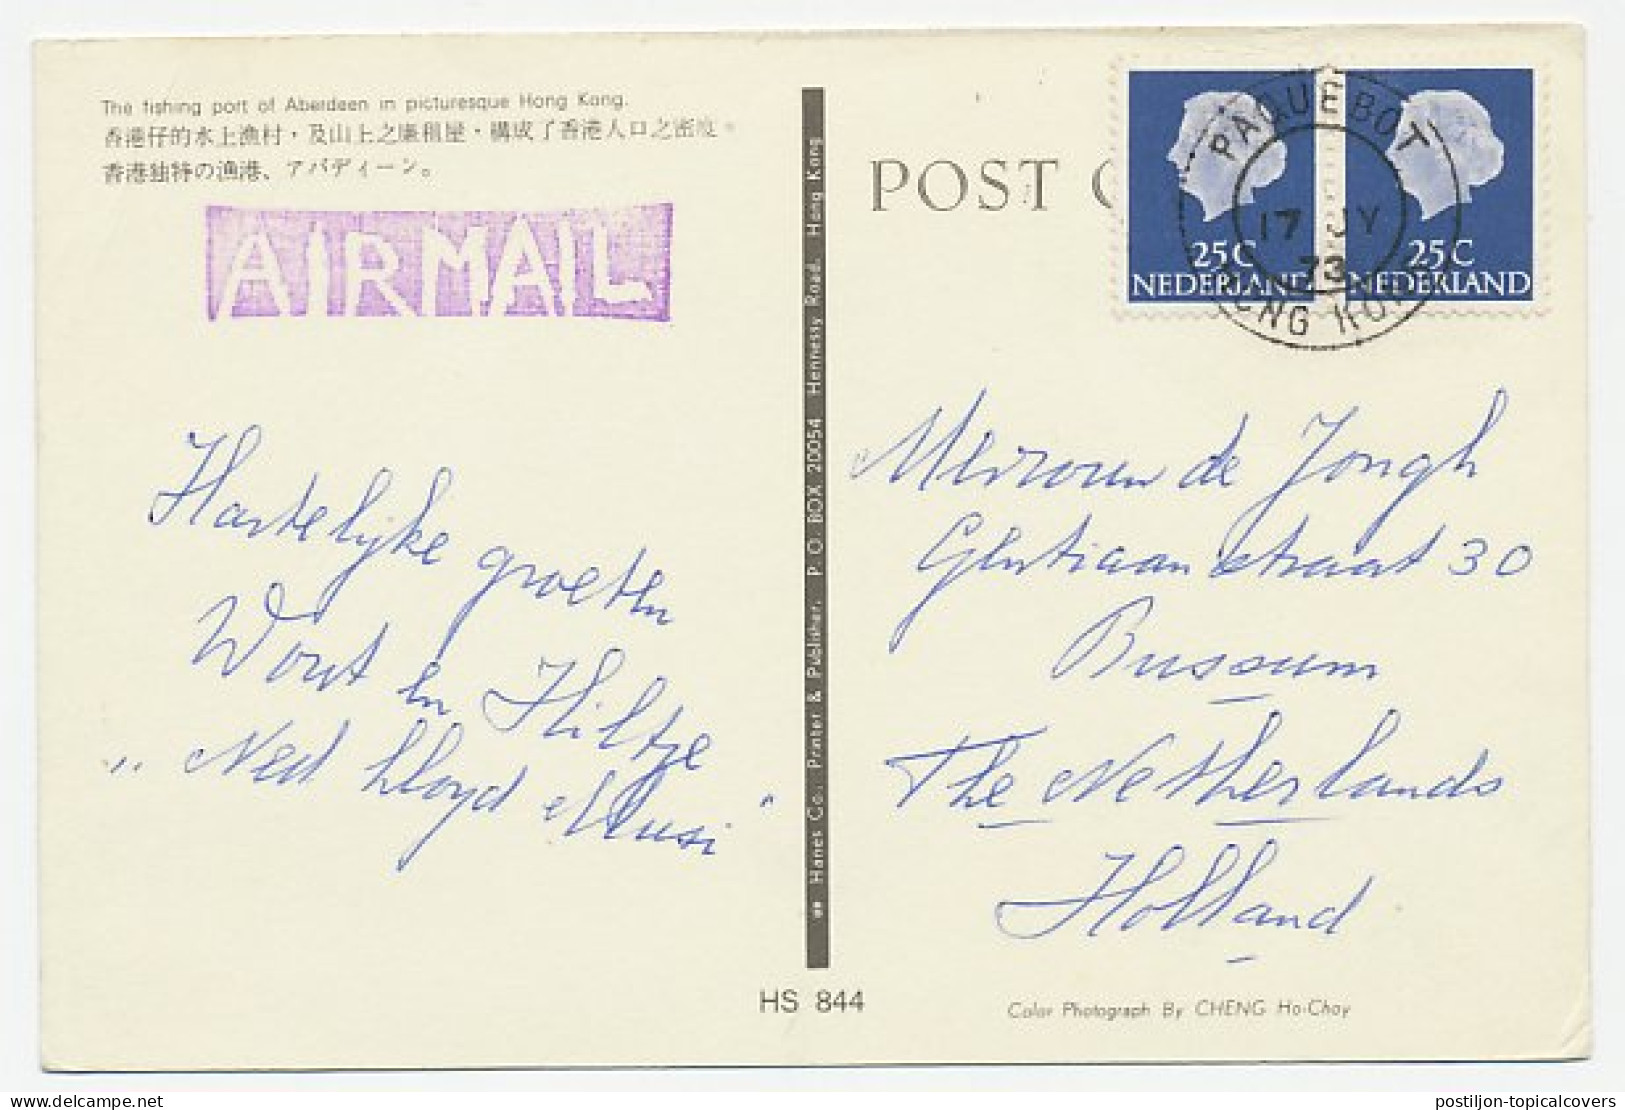 The fishing port of Aberdeen in picturesque Hong Kong.
香港仔的水上漁村，及山上之廉租屋，構成了香港人口之密度。
香港独特の漁港、アバディーン。
AIR MAIL
Hartelijke groeten
Wout en Hiltje
"Ned Lloyd Musi"
Hanes Co., Printer & Publisher. P. O. BOX 20054 Hennessy Road. Hong Kong
HS 844
POST C
25C
NEDERLAND
25C
NEDERLAND
PAQUEBOT
17 JY
73
HONG KONG
Mevrouw de Jongh
Gentiaanstraat 30
Bussum
The Netherlands
Holland
Color Photograph By CHENG Ho-Choy
postiljon-topicalcovers
delcampe.net